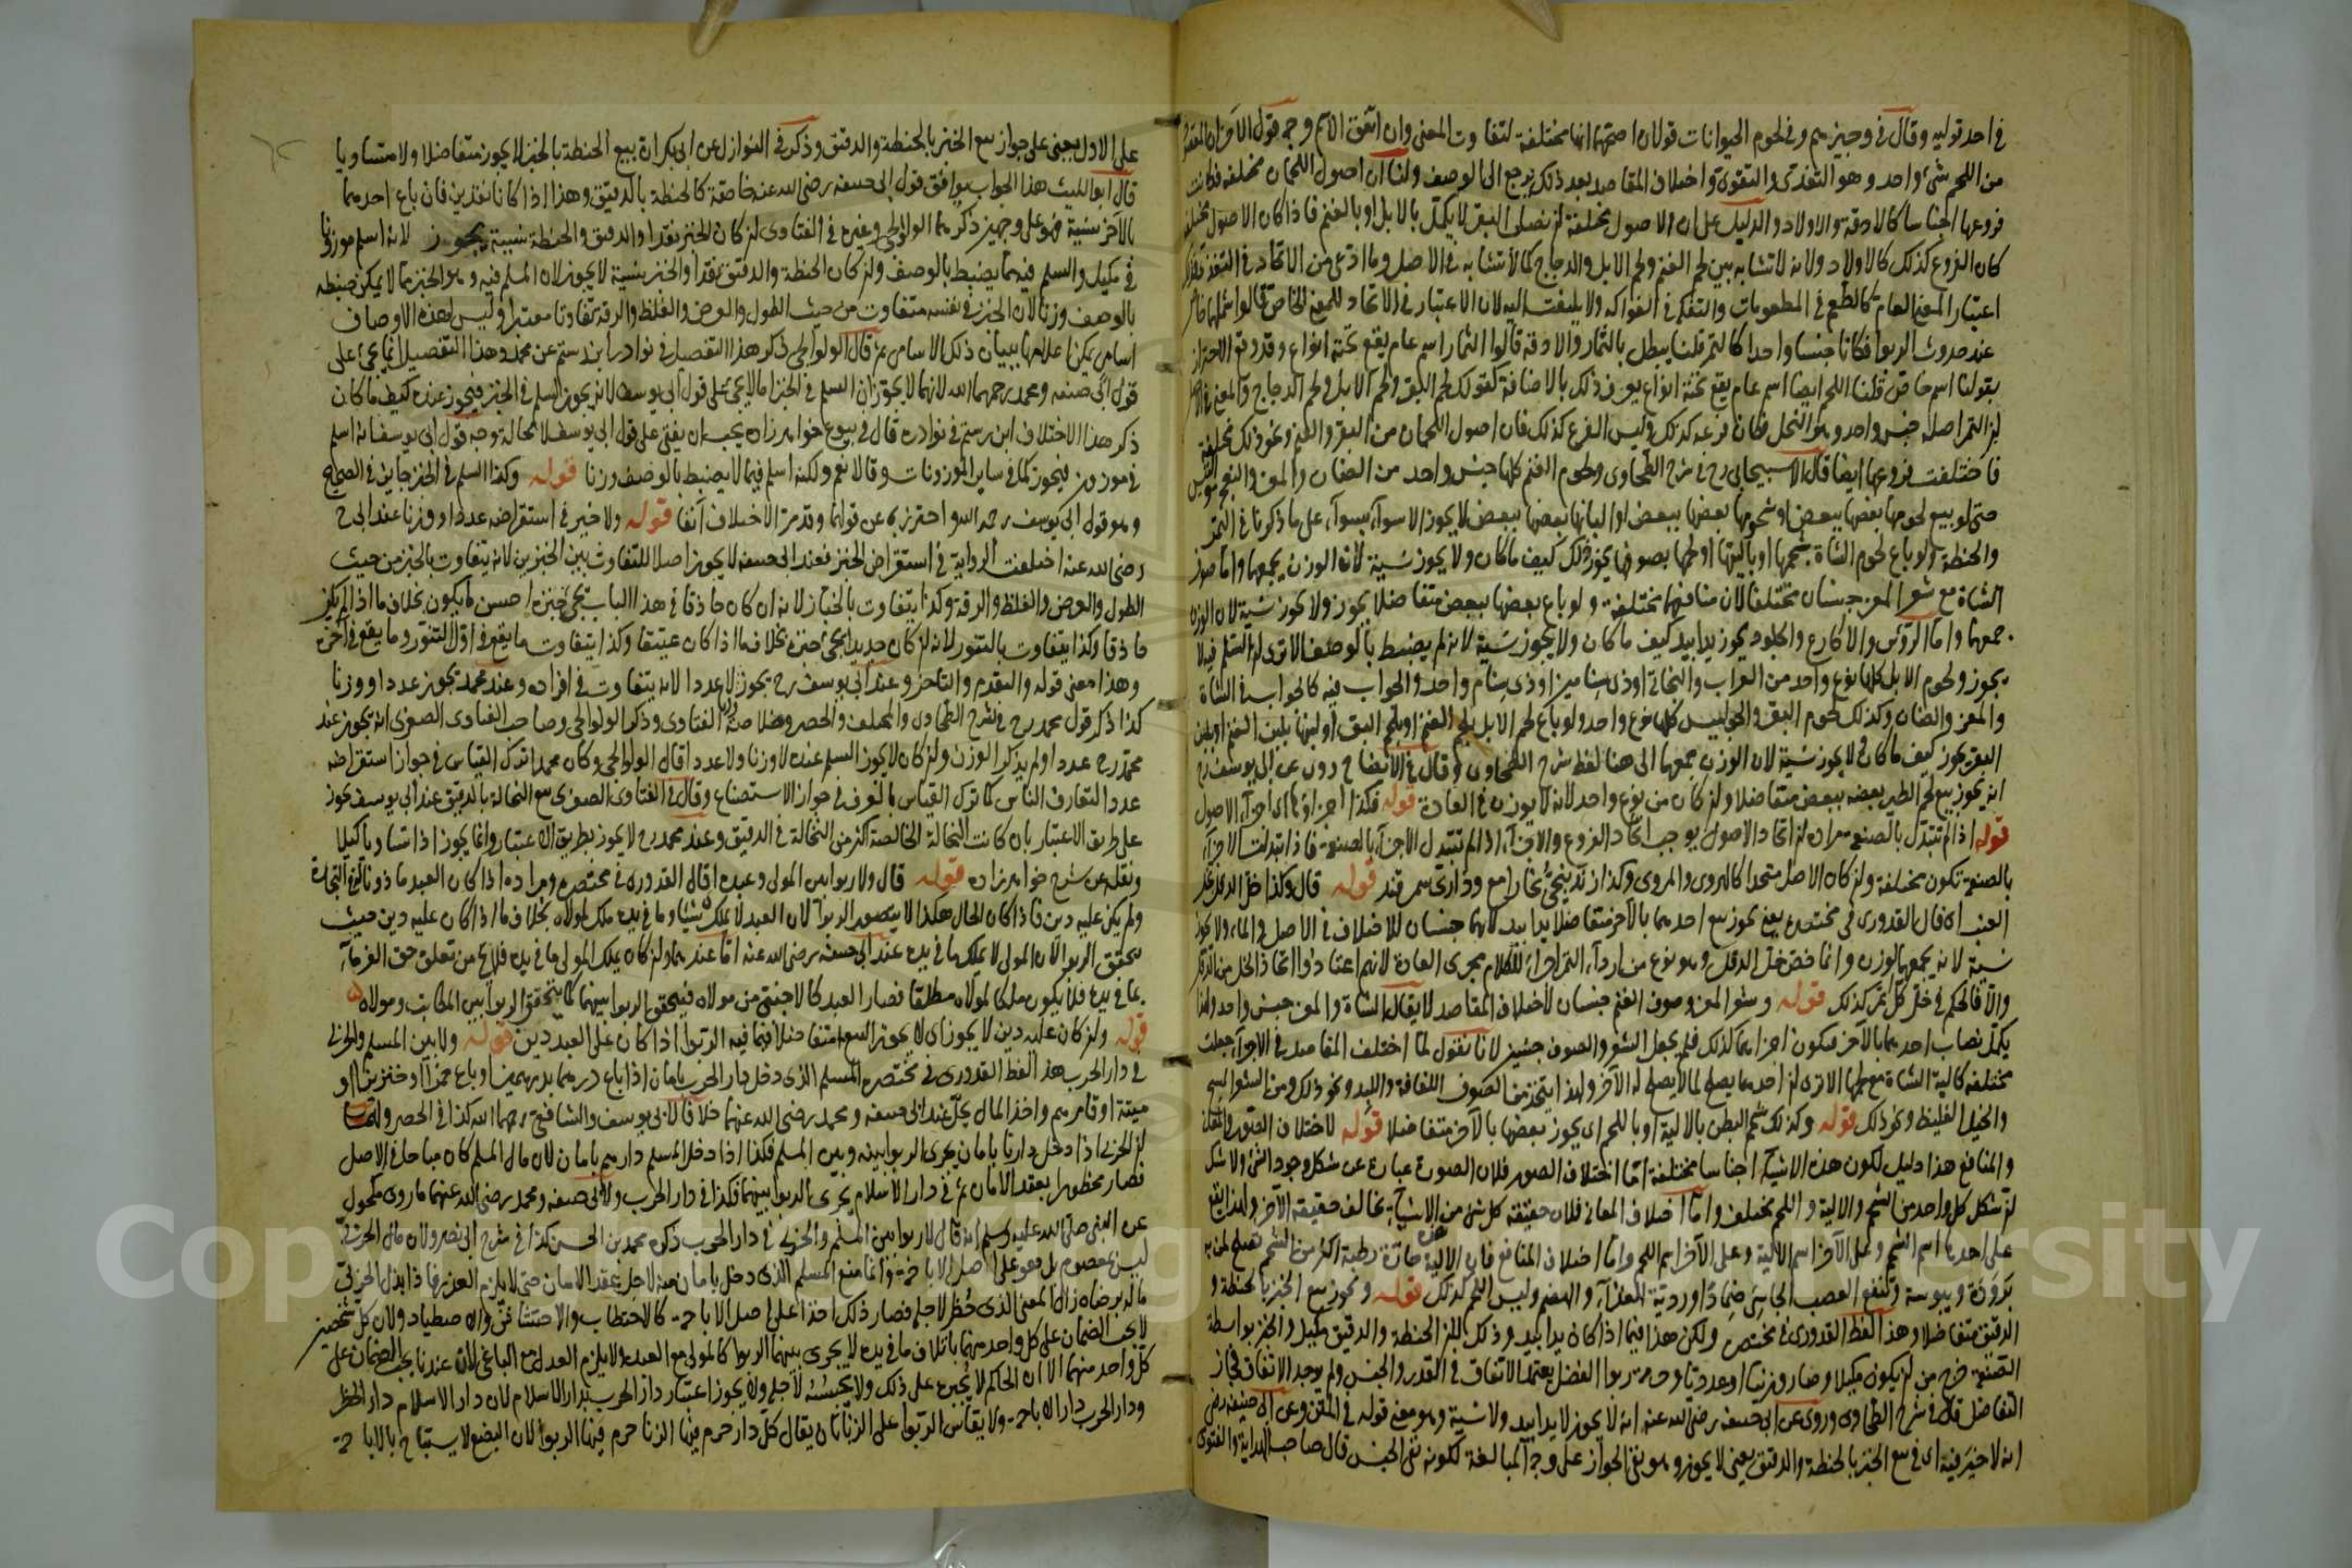 في احد قوليه وقال في وجيزهم وفي لحوم الحيوانات قولان اصحهما انها مختلفة لتفاوت المعنى وان اتفق الاسم وجه قول الآخر ان المقصود
من اللحم شئ واحد وهو التغذي والتقوي واختلاف المقاصد بعد ذلك يرجع الى الوصف ولنا ان اصول اللحمان مختلفة فكانت
فروعها اجناسا كالادقة والاولاد والدليل على ان الاصول مختلفة ان نصاب البقر لا يكمل بالابل او بالغنم فاذا كان الاصول مختلفة
كان الفروع كذلك كالاولاد ولانه لا تشابه بين لحم الغنم ولحم الابل والدجاج كما لا تشابه في الاصل وما ادعى من الاتحاد في التغذي فذلك
اعتبار المعنى العام كالطعم في المطعومات والتفكه في الفواكه ولا يلتفت اليه لان الاعتبار في الاتحاد للمعنى الخاص قالوا
عند حدوث الربوا فكانا جنسا واحدا كالتمر قلنا يبطل بالثمار والادقة قالوا الثمار اسم عام يقع تحته انواع وقد وقع الاحتراز
بقولنا اسم خاص قلنا اللحم ايضا اسم عام يقع تحته انواع يعرف ذلك بالاضافة كقولك لحم البقر ولحم الابل ولحم الدجاج والمعنى في
ان التمر اصله جنس واحد وهو النخل فكان فرعه كذلك وليس الفرع كذلك فان اصول اللحمان من البقر والغنم ونحو ذلك مختلفة
فاختلفت فروعها ايضا قال الاسبيجابي رح في شرح الطحاوي ولحوم الغنم كلها جنس واحد من الضان والمعز والنعجة والتيس
حتى لو بيع لحومها بعضها ببعض او شحومها بعضها ببعض او البانها بعضها ببعض لا يجوز الا سواء بسواء على ما ذكرنا في التمر
والحنطة ولو باع لحوم الشاة بشحمها او باليتها او لحمها بصوفها يجوز ذلك كيف ما كان ولا يجوز نسيئة لان الوزن يجمعها واما صوف
الشاة مع شعر المعز جنسان مختلفا لان منافعهما مختلفة ولو باع بعضها ببعض متفاضلا يجوز ولا يجوز نسيئة لان الوزن
جمعهما واما الرؤس والاكارع والجلود يجوز يدا بيد كيف ما كان ولا يجوز نسيئة لانه لم يضبط بالوصف الا ترى ان السلم فيه لا
يجوز ولحوم الابل كلها نوع واحد من العراب والبخاتي او ذي سنامين او ذي سنام واحد والجواب فيه كالجواب في الشاة
والمعز والضان وكذلك لحوم البقر والجواميس كلها نوع واحد ولو باع لحم الابل بلحم الغنم او بلحم البقر او لبنها بلبن الغنم او بلبن
البقر يجوز كيف ما كان ولا يجوز نسيئة لان الوزن جمعها الى هنا لفظ شرح الطحاوي وقال في الايضاح روى عن ابي يوسف رح
انه يجوز بيع لحم الطير بعضه ببعض متفاضلا وان كان من نوع واحد لانه لا يوزن في العادة قوله فكذا اجزاؤها اي اجزاء الاصول
قوله اذا لم تتبدل بالصنعة مراده ان اتحاد الاصول يوجب اتحاد الفروع والاجزاء اذا لم تتبدل الاجزاء بالصنعة فاذا تبدلت الاجزاء
بالصنعة تكون مختلفة وان كان الاصل متحدا كالهروي والمروي وكذا زندنيجي بخارا مع وذاري سمرقند قوله قال وكذا خل الدقل بخل
العنب اي قال القدوري في مختصره يعني يجوز بيع احدهما بالآخر متفاضلا يدا بيد لانهما جنسان للاختلاف في الاصل والماء ولا يجوز
نسيئة لانه يجمعهما الوزن وانما خص خل الدقل وهو نوع من اردأ التمر اجراء للكلام مجرى العادة لانهم اعتادوا اتخاذ الخل من الدقل
والا فالحكم في خل كل تمر كذلك قوله وشعر المعز وصوف الغنم جنسان لاختلاف المقاصد لا يقال الشاة والمعز جنس واحد ولهذا
يكمل نصاب احدهما بالآخر فيكون اجزاؤهما كذلك فلم يجعل الشعر والصوف جنسين لانا نقول لما اختلف المقاصد في الاجزاء جعلت
مختلفة كالية الشاة مع لحمها الا ترى ان احدهما يصلح لما لا يصلح له الآخر ولهذا يتخذ من الصوف اللفافة واللبد ونحو ذلك ومن الشعر المسح
والحبل الغليظ ونحو ذلك قوله وكذلك شحم البطن بالالية او باللحم اي يجوز بعضها بالآخر متفاضلا قوله لاختلاف الصور والمعاني
والمنافع هذا دليل لكون هذه الاشياء اجناسا مختلفة اما اختلاف الصور فلان الصورة عبارة عن شكل وجود الشئ ولا شك
ان شكل كل واحد من الشحم والالية واللحم مختلف واما اختلاف المعاني فلان حقيقة كل شئ من الاشياء تخالف حقيقة الآخر ولهذا يقع
على احدهما اسم الشحم وعلى الآخر اسم الالية وعلى الآخر اسم اللحم واما اختلاف المنافع فان الالية حارة رطبة اكثر من الشحم فتصلح لمن به
برودة ويبوسة وتنفع العصب الجاسئ ضمادا وردية للغذاء والهضم وليس اللحم كذلك قوله ويجوز بيع الخبز بالحنطة و
الدقيق متفاضلا وهذا لفظ القدوري في مختصره ولكن هذا فيما اذا كان يدا بيد وذلك لان الحنطة والدقيق مكيل والخبز بواسطة
الصنعة خرج من ان يكون مكيلا وصار وزنيا او عدديا وحرمة ربوا الفضل يعتمد الاتفاق في القدر والجنس ولم يوجد الاتفاق فجاز
التفاضل قال في شرح الطحاوي وروى عن ابي حنيفة رضي الله عنه انه لا يجوز لا يدا بيد ولا نسيئة وهو معنى قوله في المتن وعن ابي حنيفة رض
انه لا خير فيه اي في بيع الخبز بالحنطة والدقيق يعني لا يجوز وهو نفي الجواز على وجه المبالغة لكونه نفي الجنس قال صاحب الهداية والفتوى
على الاول يعني على جواز بيع الخبز بالحنطة والدقيق وذكر في النوازل عن ابي بكر انه بيع الحنطة بالخبز لا يجوز متفاضلا ولا متساويا
قال ابو الليث هذا الجواب يوافق قول ابي حنيفة رضي الله عنه خاصة كالحنطة بالدقيق وهذا اذا كانا نقدين فان باع احدهما
بالآخر نسيئة فهو على وجهين ذكرهما الولوالجي وغيره في الفتاوى ان كان الخبز نقدا والدقيق والحنطة نسيئة يجوز لانه اسلم موزونا
في مكيل والسلم فيه مما يضبط بالوصف وان كان الحنطة والدقيق نقدا والخبز نسيئة لا يجوز لان المسلم فيه وهو الخبز مما لا يمكن ضبطه
بالوصف وزنا لان الخبز في نفسه متفاوت من حيث الطول والعرض والغلظ والرقة تفاوتا معتبرا وليس لهذه الاوصاف
اسامي يمكن اعلامها ببيان ذلك الاسامي ثم قال الولوالجي ذكر هذا التفصيل في نوادر ابن رستم عن محمد وهذا التفصيل انما يجئ على
قول ابي حنيفة ومحمد رحمهما الله لانهما لا يجوزان السلم في الخبز اما لا يجئ على قول ابي يوسف لانه يجوز السلم في الخبز فيجوز عنده كيف ما كان
ذكر هذا الاختلاف ابن رستم في نوادره قال في بيوع خواهر زاده يجب ان يفتى على قول ابي يوسف لا محالة وجه قول ابي يوسف انه اسلم
في موزون فيجوز كما في ساير الموزونات وقالا نعم ولكنه اسلم فيما لا يضبط بالوصف وزنا قوله وكذا السلم في الخبز جايز في الصحيح
وهو قول ابي يوسف رحمه الله واحترز به عن قولهما وقد مر الاختلاف آنفا قوله ولا خير في استقراضه عددا او وزنا عند ابي ح
رضي الله عنه اختلفت الرواية في استقراض الخبز فعند ابي حنيفة لا يجوز اصلا للتفاوت بين الخبزين لانه يتفاوت بالخبز من حيث
الطول والعرض والغلظ والرقة وكذا يتفاوت بالخباز لانه ان كان حاذقا في هذا الباب يجئ خبزه احسن ما يكون بخلاف ما اذا لم يكن
حاذقا وكذا يتفاوت بالتنور لانه ان كان جديدا يجئ خبزه بخلاف ما اذا كان عتيقا وكذا يتفاوت ما يقع في اول التنور وما يقع في آخره
وهذا معنى قوله والتقدم والتاخر وعند ابي يوسف رح يجوز وزنا لا عددا لانه يتفاوت في افراده وعند محمد يجوز عددا ووزنا
كذا ذكر قول محمد رح في شرح الطحاوي والمختلف والحصر وخلاصة الفتاوى وذكر الولوالجي وصاحب الفتاوى الصغرى انه يجوز عند
محمد رح عددا ولم يذكر الوزن وان كان لا يجوز السلم عنده لا وزنا ولا عددا قال الولوالجي وكان محمد اترك القياس في جواز استقراضه
عددا لتعارف الناس كما ترك القياس بالعرف في جواز الاستصناع وقال في الفتاوى الصغرى بيع النخالة بالدقيق عند ابي يوسف يجوز
على طريق الاعتبار بان كانت النخالة الخالصة اكثر من النخالة في الدقيق وعند محمد رح لا يجوز بطريق الاعتبار وانما يجوز اذا تساويا كيلا
ونقله عن شرح خواهر زاده قوله قال ولا ربوا بين المولى وعبده اي قال القدوري في مختصره ومراده اذا كان العبد ماذونا له في التجارة
ولم يكن عليه دين فاذا كان الحال هكذا لا يتصور الربوا لان العبد لا يملك شيئا وما في يده ملك لمولاه بخلاف ما اذا كان عليه دين حيث
يتحقق الربوا لان المولى لا يملك ما في يده عند ابي حنيفة رضي الله عنه اما عندهما وان كان يملك المولى ما في يده فلا يخ من تعلق حق الغرماء
بما في يده فلا يكون ملكا لمولاه مطلقا فصار العبد كالاجنبي من مولاه فيتحقق الربوا بينهما كما يتحقق الربوا بين المكاتب ومولاه
قوله وان كان عليه دين لا يجوز اي لا يجوز البيع متفاضلا فيما فيه الربوا اذا كان على العبد دين قوله ولا بين المسلم والحربي
في دار الحرب هذا لفظ القدوري في مختصره المسلم الذي دخل دار الحرب بامان اذا باع درهما بدرهمين او باع خمرا او خنزيرا او
ميتة او قامرهم واخذ المال يحل عند ابي حنيفة ومحمد رضي الله عنهما خلافا لابي يوسف والشافعي رحمهما الله كذا في الحصر ولهما
ان الحربي اذا دخل دارنا بامان يجري الربوا بينه وبين المسلم فكذا اذا دخل المسلم دارهم بامان لان مال المسلم كان مباحا في الاصل
فصار محظورا بعقد الامان ثم في دار الاسلام يجري الربوا بينهما فكذا في دار الحرب ولابي حنيفة ومحمد رضي الله عنهما ما روى مكحول
عن النبي صلى الله عليه وسلم انه قال لا ربوا بين المسلم والحربي في دار الحرب ذكره محمد بن الحسن كذا في شرح ابي نصر ولان مال الحربي
ليس بمعصوم بل هو على اصل الاباحة وانما منع المسلم الذي دخل بامان منه لاجل عقد الامان حتى لا يلزم الغدر فاذا بذل الحربي
ماله برضاه زال المعنى الذي حظر لاجله فصار ذلك اخذا على اصل الاباحة كالاحتطاب والاحتشاش والاصطياد ولان كل شخصين
لا يجب الضمان على كل واحد منهما باتلاف ما في يده لا يجري بينهما الربوا كالمولى مع العبد ولا يلزم العدل مع الباغي لان عندنا يجب الضمان على
كل واحد منهما الا ان الحاكم لا يجبره على ذلك ولا يحبسه لاجله ولا يجوز اعتبار دار الحرب بدار الاسلام لان دار الاسلام دار الحظر
ودار الحرب دار الاباحة ولا يقاس الربوا على الزنا بان يقال كل دار حرم فيها الزنا حرم فيها الربوا لان البضع لا يستباح بالاباحة